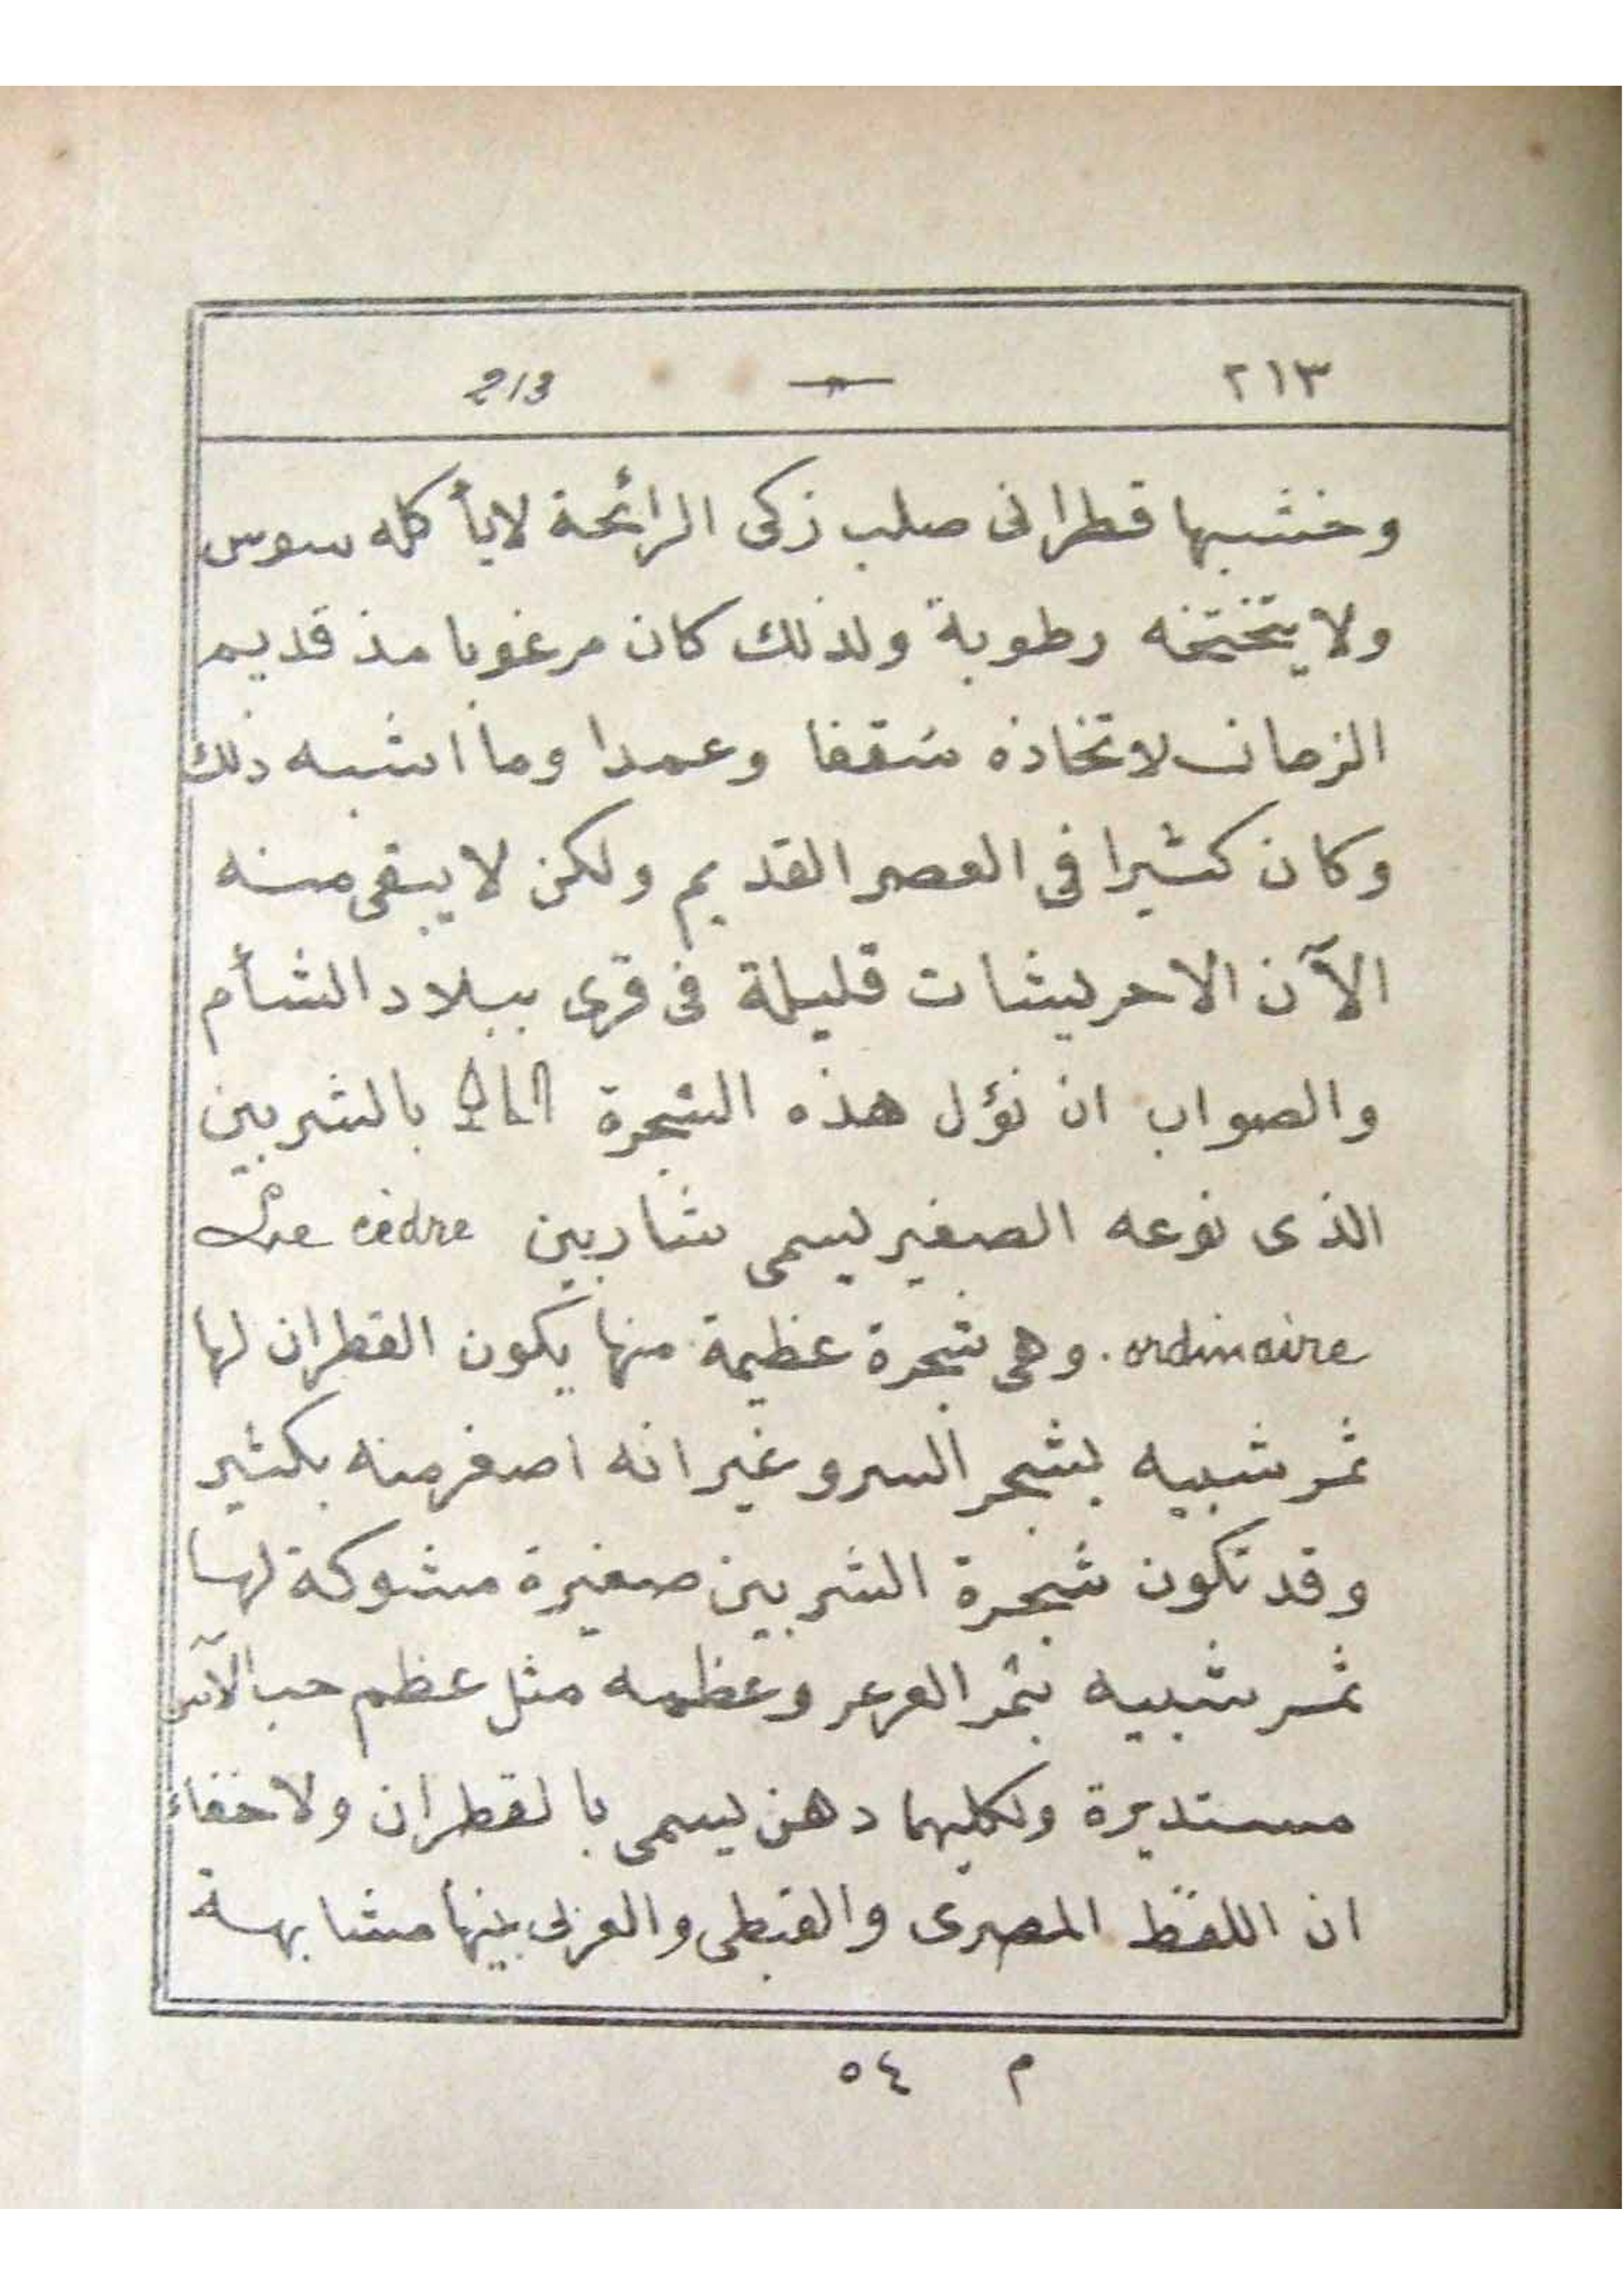 ٢١٣ — 213
وخشبها قطرانى صلب زكى الرائحة لايأكله سوس
ولا رطوبة ولذلك كان مرغوبا مذ قديم
الزمان لاتخاذه سقفا وعمدا وما اشبه ذلك
وكان كثيرا فى العصر القديم ولكن لا يبقى منه
الآن الا حريشات قليلة فى قرى ببلاد الشأم
والصواب ان نؤل هذه الشجرة بالشربين
الذى نوعه الصغير يسمى شاربين Le cèdre
ordinaire. وهى شجرة عظيمة منها يكون القطران لها
ثمر شبيه بشجر السرو غير انه اصغر منه بكثير
وقد تكون شجرة الشربين صغيرة مشوكة لها
ثمر شبيه بثمر العرعر وعظمه مثل عظم حب الآس
مستديرة ولكليهما دهن يسمى بالقطران ولاخفاء
ان اللفظ المصرى والقبطى والعربى بينها مشابهة
م ٥٤